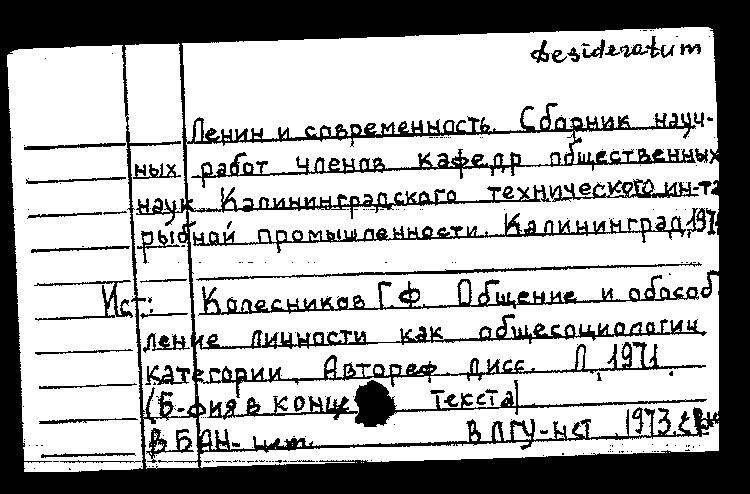 desideratum
Ленин и современность. Сборник науч-
ных работ членов кафедр общественных
наук Калининградского технического ин-та
рыбной промышленности. Калининград, 197
Ист: Колесников Г.Ф. Общение и обособ
ление личности как общесоциологич.
категории. Автореф. дисс. Л., 1971.
(Б-фия в конце текста)
В БАН- нет. В ЛГУ-нет 1973.